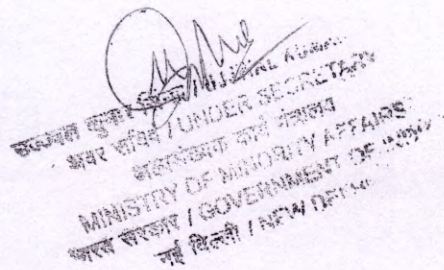 उज्ज्वल कुमार
अवर सचिव / UNDER SECRETARY
अल्पसंख्यक कार्य मंत्रालय
MINISTRY OF MINORITY AFFAIRS
भारत सरकार / GOVERNMENT OF INDIA
नई दिल्ली / NEW DELHI